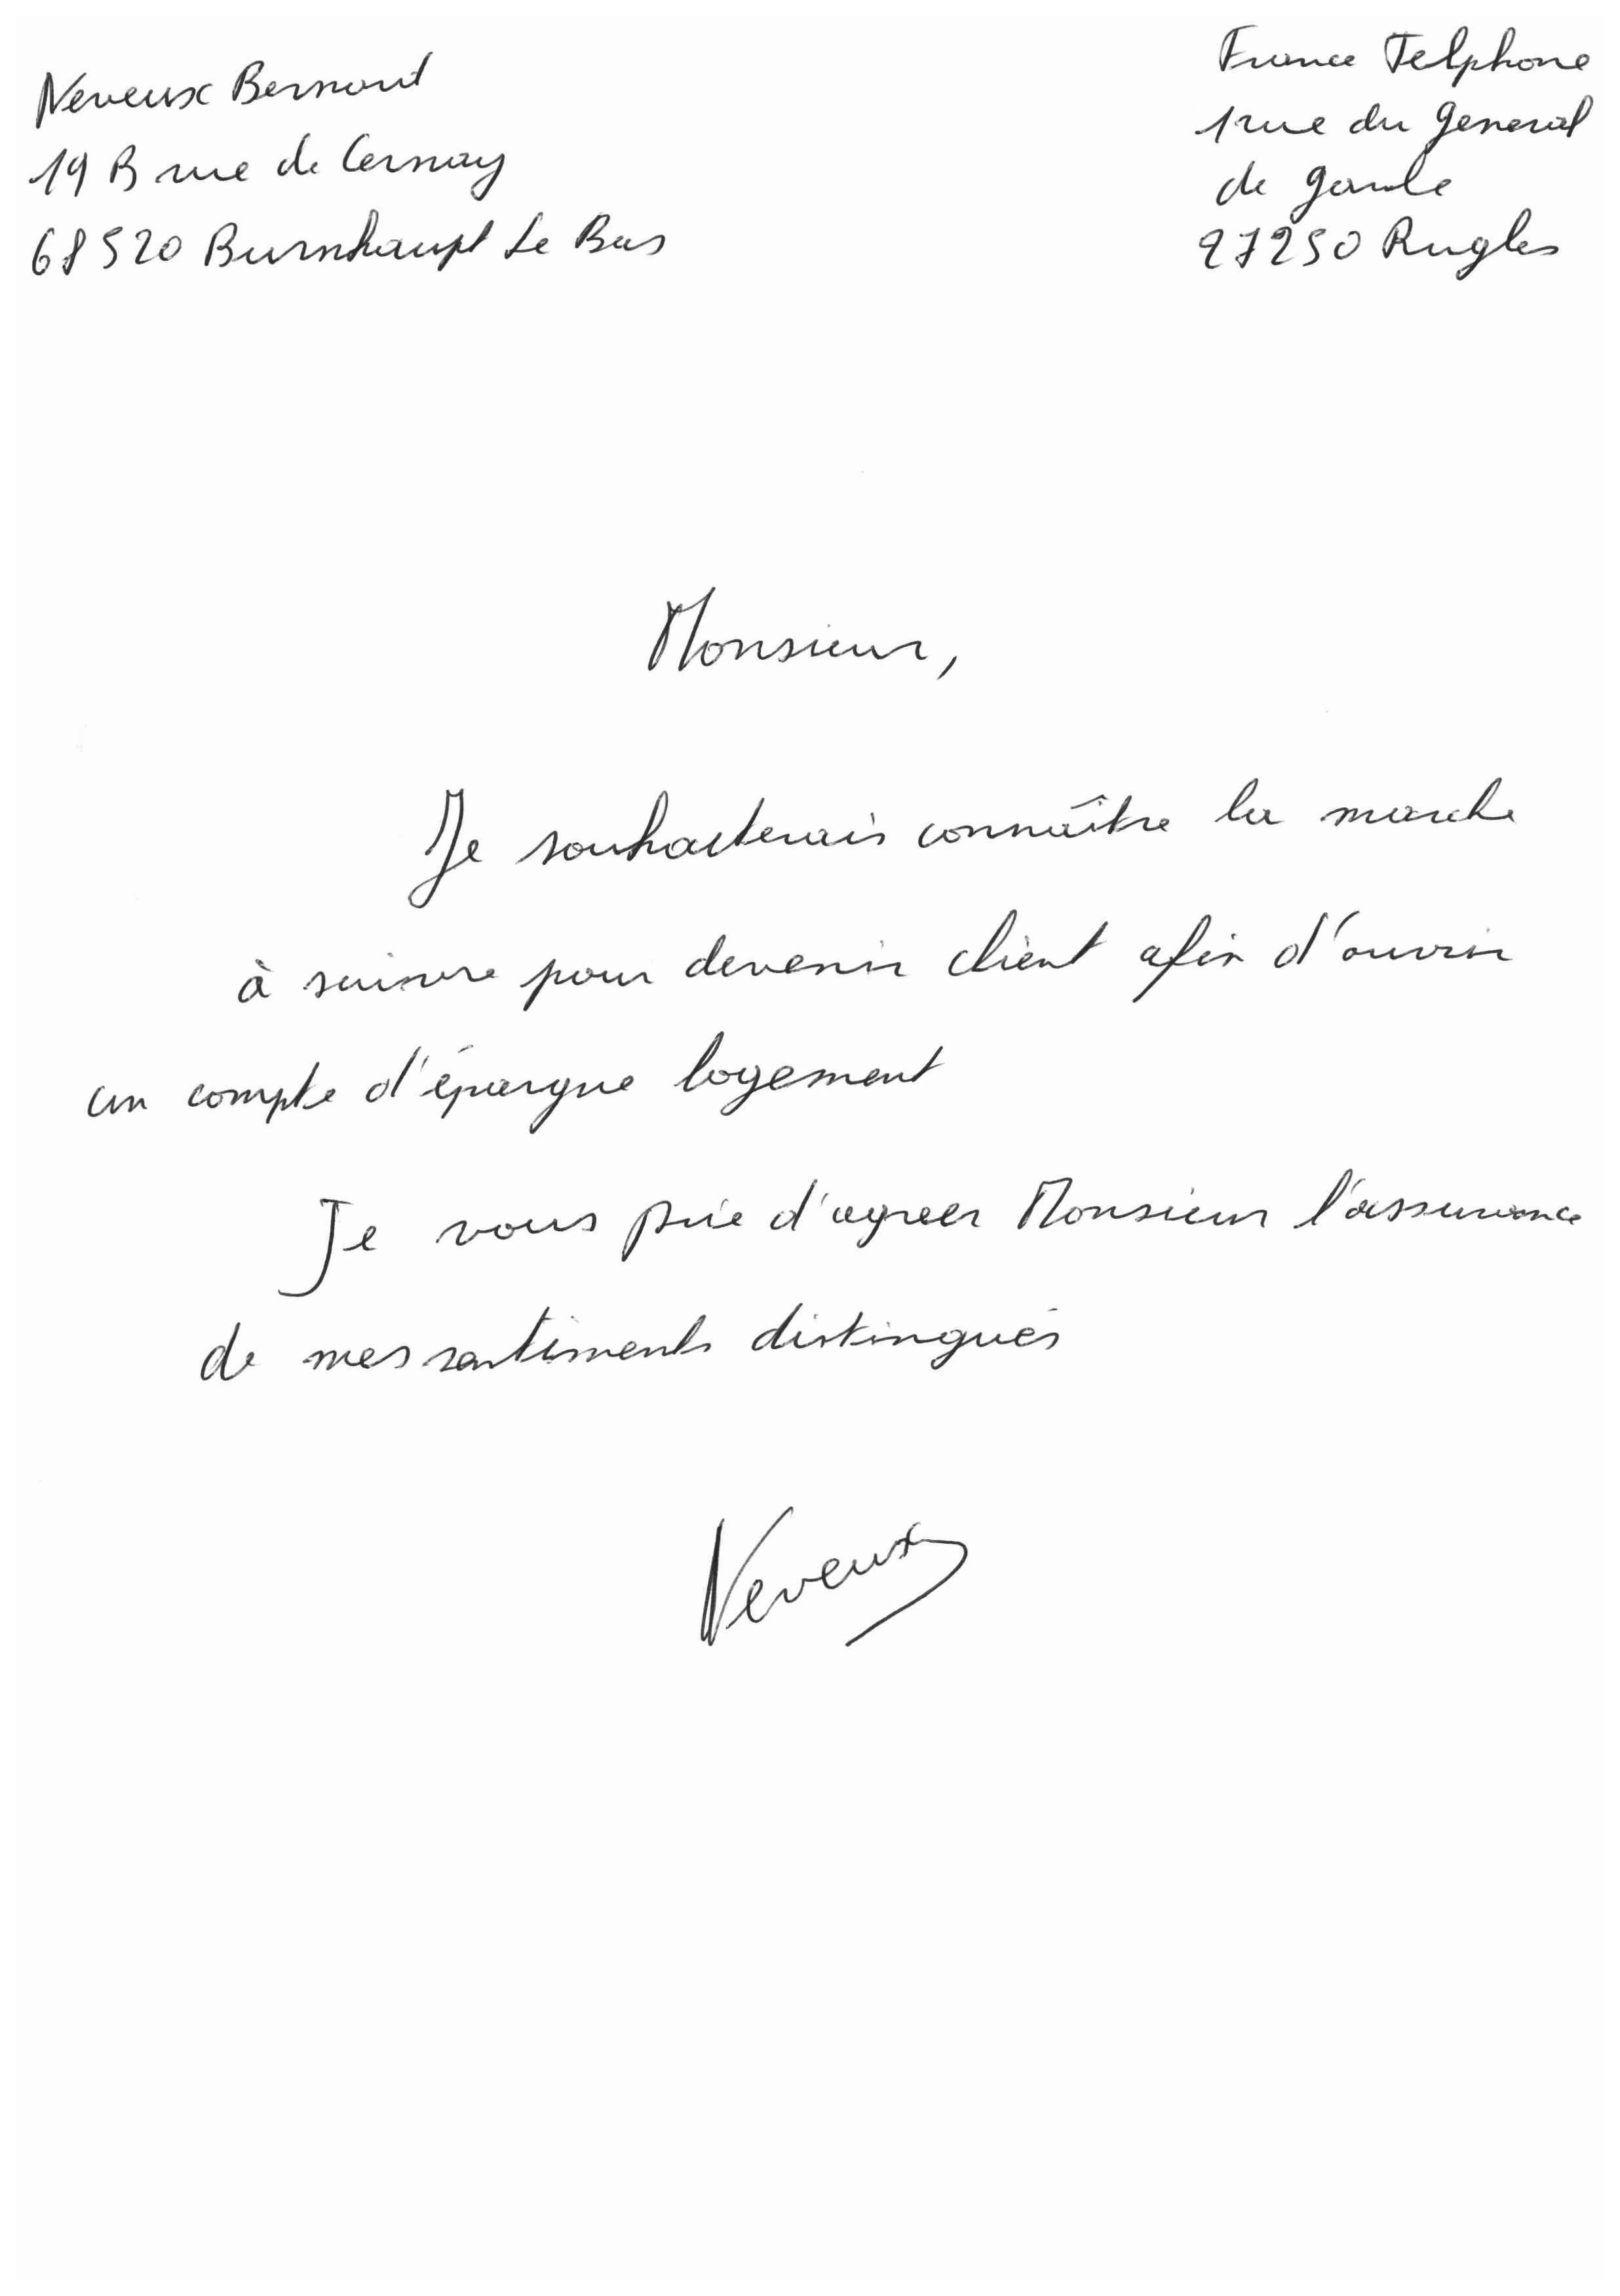 Neveux Bernard
19 B rue de Cernay
68520 Burnhaupt Le Bas
France Telphone
1 rue du General
de gaule
27250 Rugles
Monsieur,
Je souhaiterais connaître la marche
à suivre pour devenir client afin d'ouvrir
un compte d'épargne logement
Je vous prie d'agreer Monsieur l'assurance
de mes sentiments distingués
Neveux